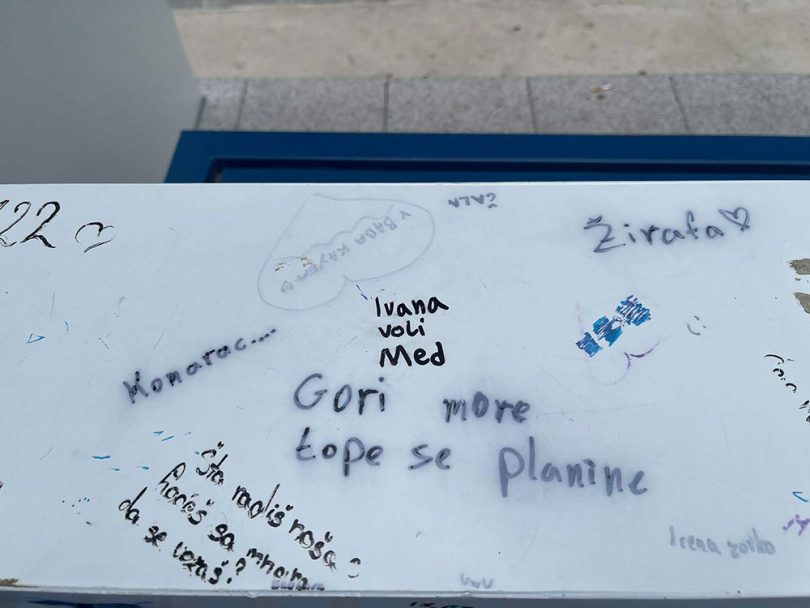 122
ZALA
Žirafa
Ivana
voli
Med
Komarac....
Gori more
tope se planine
Šta radiš roša
hoćeš sa mnom
da se voziš?
Irena zorko
UwU